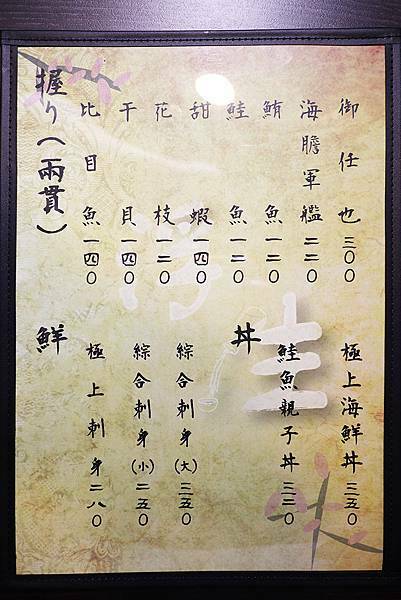 握り（兩貫）
比目魚一四０
干貝一四０
花枝一二０
甜蝦一四０
鮭魚一二０
鮪魚一二０
海膽軍艦二二０
御任也三００
鮮
極上刺身二八０
綜合刺身（小）二五０
綜合刺身（大）三五０
丼
鮭魚親子丼三二０
極上海鮮丼三五０